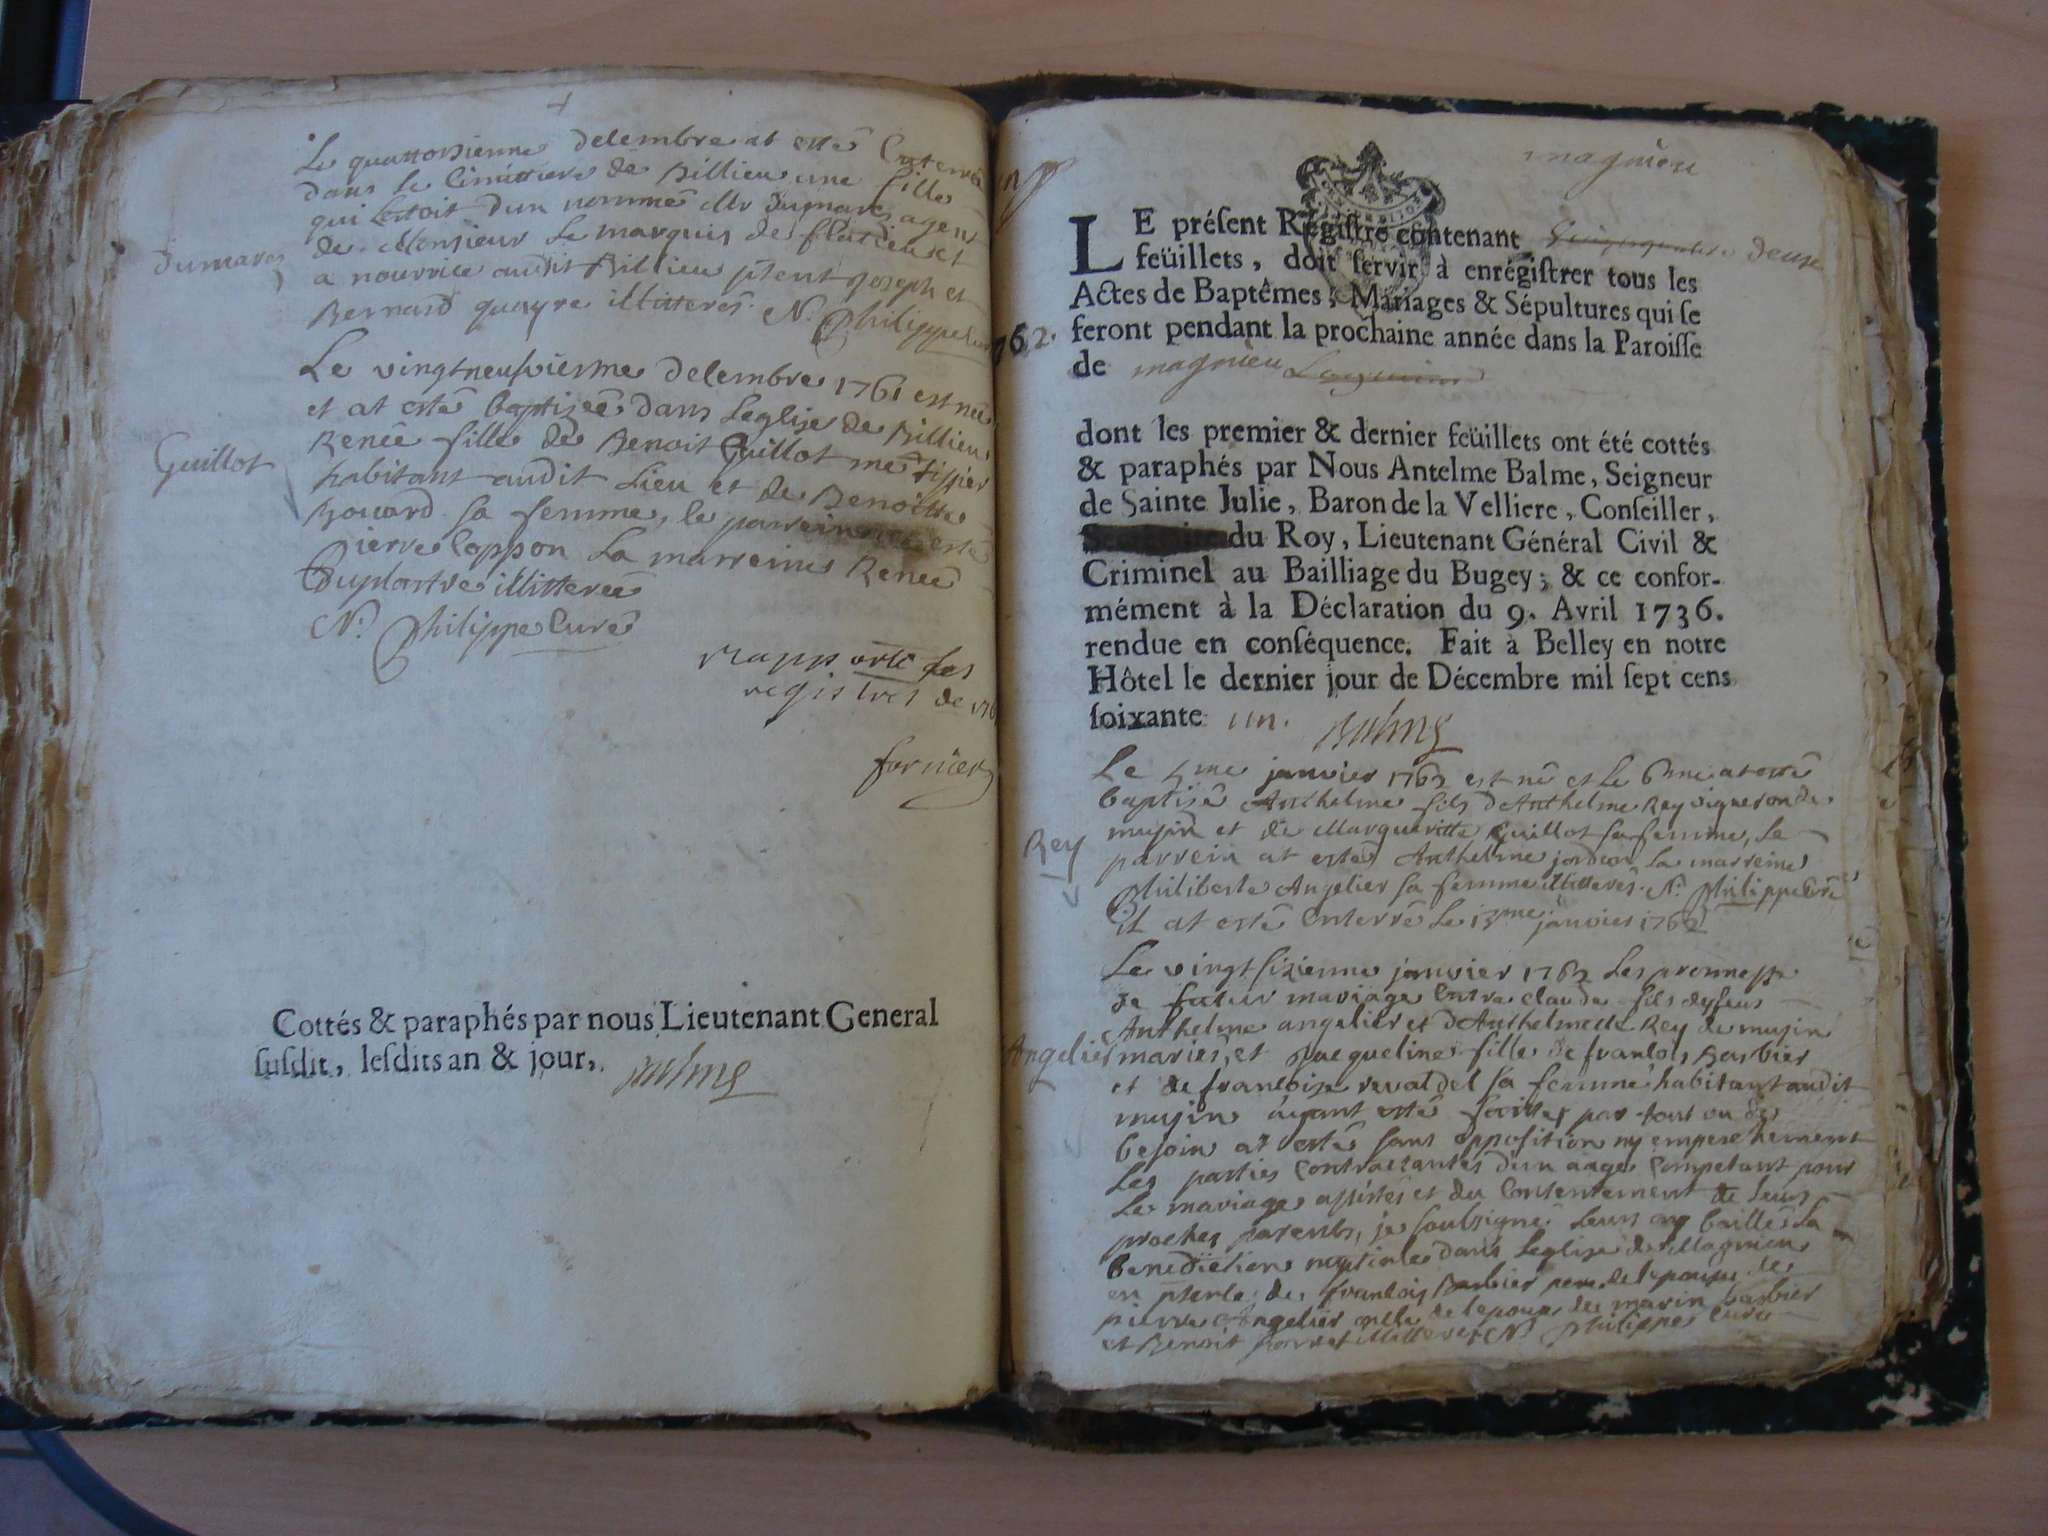 Le quattorsienne decembre at esté Enterré
dans le Cimittiere de Billieu une fille
qui Estoit d'un nommé Mr Dumares agent
de Monsieur Le marquis de
Dumares
a nourrice audit Billieu ptent Joseph et
Bernard quayre illitterés. N. Philippe
Le vingtneufviesme decembre 1761 est née
et at esté baptisée dans Leglise de Billieu
Renée fille de Benoit Guillot me tissier
Guillot
habitant audit Lieu et de Benoitte
Bouvard sa femme, le parrein at esté
pierre Coppon La marreine Renée
Duplastre illitterée
N. Philippe Curé
rapporté les
registres de 176
fornier
Cottés & paraphés par nous Lieutenant General
susdit, lesdits an & jour, Balme
magnieu
LE présent Régistre contenant deux
feüillets, doit servir à enrégistrer tous les
Actes de Baptêmes, Mariages & Sépultures qui se
feront pendant la prochaine année dans la Paroisse
762.
de magnieu
dont les premier & dernier feüillets ont été cottés
& paraphés par Nous Antelme Balme, Seigneur
de Sainte Julie, Baron de la Velliere, Conseiller,
du Roy, Lieutenant Général Civil &
Criminel au Bailliage du Bugey; & ce confor-
mément à la Déclaration du 9. Avril 1736.
rendue en conséquence. Fait à Belley en notre
Hôtel le dernier jour de Décembre mil sept cens
soixante un. Balme
Le 5me janvier 1762 est né et le 6me at esté
baptisé Anthelme fils d'Anthelme Rey vigneron de
musin et de Margueritte Guillot sa femme, le
Rey
parrein at esté Anthelme jordan La marreine
Philiberte Angelier sa femme illitterés. N. Philippe Curé
il at esté Enterré le 13me janvier 1762
Le vingt sixienne janvier 1762 Les promesse
de futur mariage Entre claude fils de feus
Anthelme angelier et d'Anthelmette Rey de musin
Angelier
mariés, et Jacqueline fille de francois Barbier
et de francoise revaldel sa femme habitant audit
musin ayant esté faittes par tout ou de
besoin at esté sans opposition ny emperchement
Les parties Contractantes d'un aage Competant pour
Le mariage assistés et du Consentement de leurs
proches parents, je soubsigné Leurs ay baillés La
benediction nuptiale dans Leglise de Magnieu
en ptence de francois Barbier pere de lepouse de
pierre Angelier oncle de lepoux de marin barbier
et Benoit illitterés N. Philippe Curé